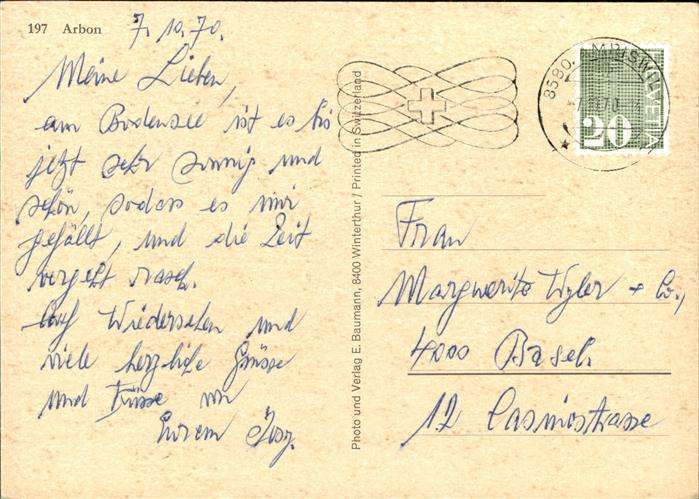 197 Arbon
7. 10. 70.
Meine Lieben,
am Bodensee ist es bis
jetzt sehr sonnig und
schön, sodass es mir
gefällt, und die Zeit
vergeht rasch.
Auf Wiedersehen und
viele herzliche Grüsse
und Küsse von
Eurem
Photo und Verlag E. Baumann, 8400 Winterthur / Printed in Switzerland
8580
HELVETIA
20
Frau
Marguerite Wyler + Co.,
4000 Basel
12 Casinostrasse